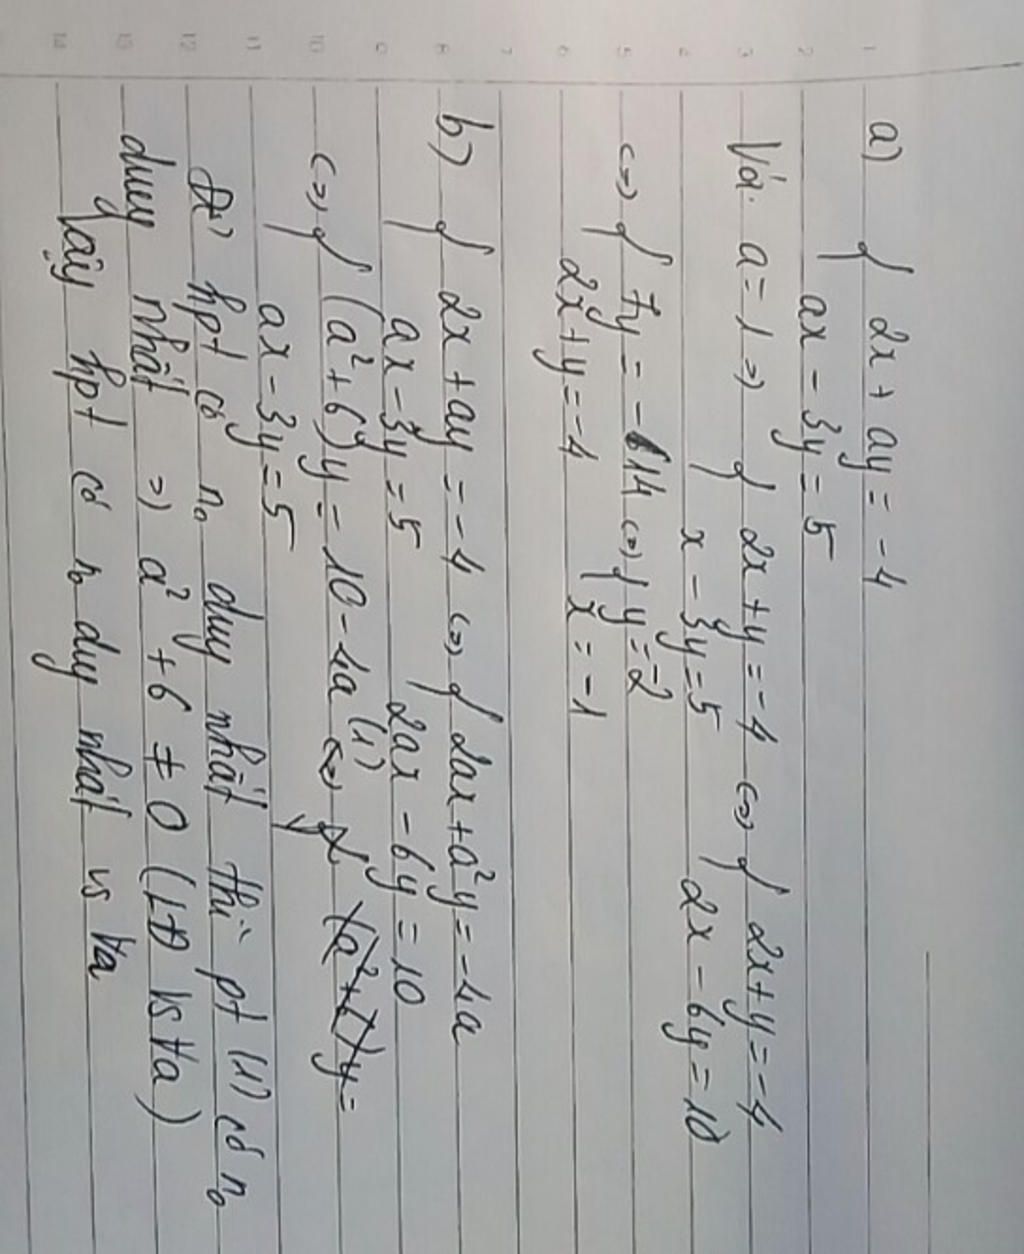 a) { 2x + ay = -4
ax - 3y = 5
Vá. a = 1 => { 2x + y = -4 <=> { 2x + y = -4
x - 3y = 5 2x - 6y = 10
<=> { 7y = -14 <=> { y = -2
2x + y = -4 x = -1
b) { 2x + ay = -4 <=> { 2ax + a²y = -4a
ax - 3y = 5 2ax - 6y = 10
<=> { (a² + 6)y = -10 - 4a (1)
ax - 3y = 5
Để hpt có no duy nhất thì pt (1) có no
duy nhất => a² + 6 ≠ 0 (LĐ vs ∀a)
Vậy hpt có no duy nhất vs ∀a